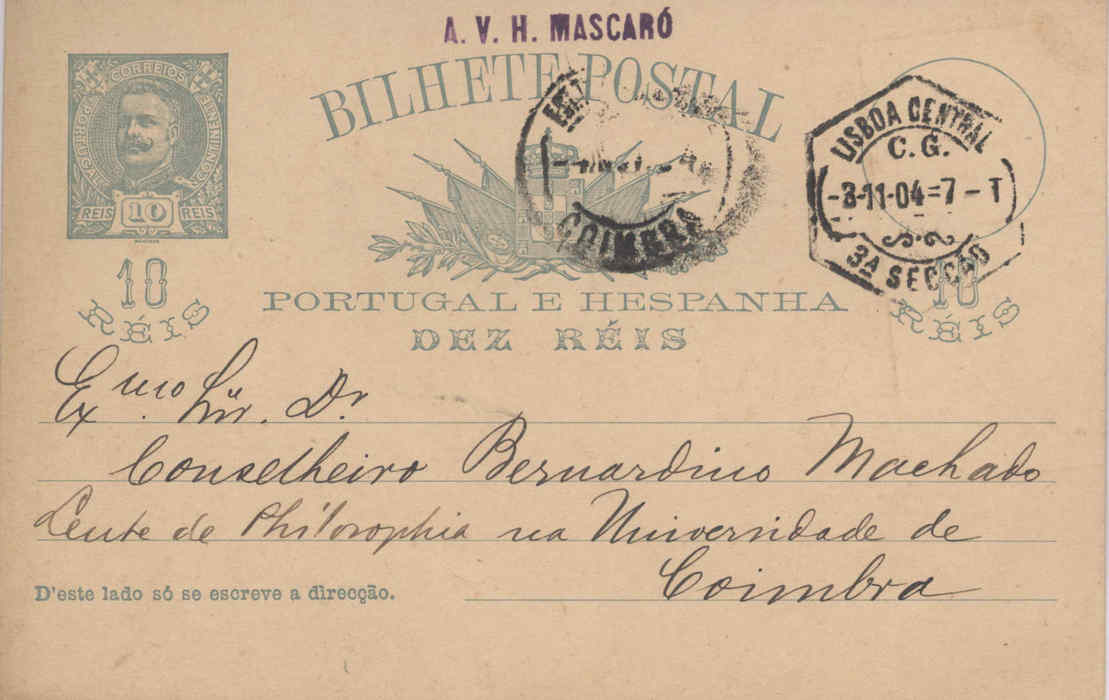 A. V. H. MASCARÓ
BILHETE POSTAL
CORREIOS
PORTUGAL
CONTINENTE
REIS 10 REIS
COIMBRA
LISBOA CENTRAL
C. G.
-3-11-04=7-T
3ª SECÇÃO
10 RÉIS
10 RÉIS
PORTUGAL E HESPANHA
DEZ RÉIS
Exmo. Snr. Dr.
Conselheiro Bernardino Machado
Lente de Philosophia na Universidade de
Coimbra
D'este lado só se escreve a direcção.